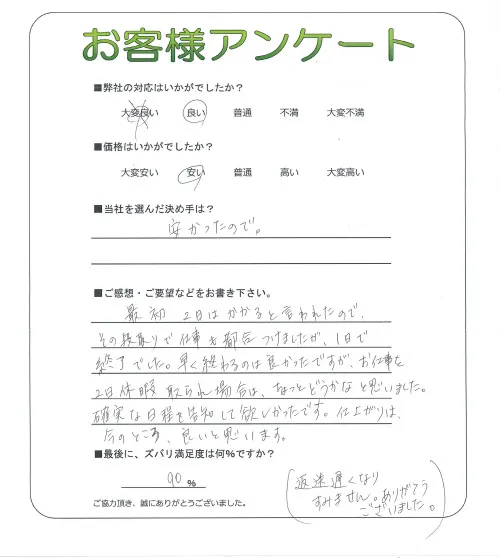 お客様アンケート
■弊社の対応はいかがでしたか？
大変良い 良い 普通 不満 大変不満
■価格はいかがでしたか？
大変安い 安い 普通 高い 大変高い
■当社を選んだ決め手は？
安かったので。
■ご感想・ご要望などをお書き下さい。
最初 2日はかかると言われたので、
その段取りで仕事を都合つけましたが、1日で
終了でした。早く終わるのは良かったですが、お仕事を
2日休暇 取られ場合は、なっとどうかなと思いました。
確実な日程を告知して欲しかったです。仕上がりは、
今のところ、良いと思います。
■最後に、ズバリ満足度は何％ですか？
90 ％
返送遅くなり
すみません。ありがとう
ございました。
ご協力頂き、誠にありがとうございました。